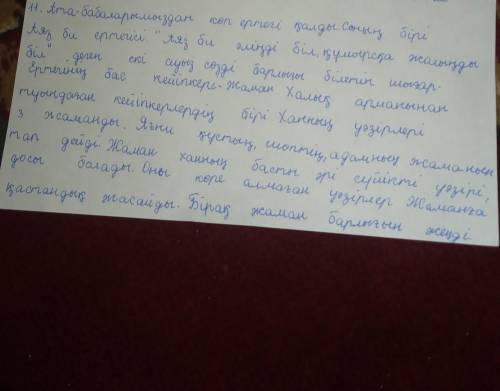 11. Ата-бабаларымыздан көп ертегі қалды. Соның бірі
Аяз би ертегісі. "Аяз би әліңді біл, құмырсқа жолыңды
біл" деген екі ауыз сөзді барлығы білетін шығар.
Ертегінің бас кейіпкері - Жаман Халық арманынан
туындаған кейіпкерлердің бірі Ханның уәзірлері
3 жаманды. Яғни құстың, шөптің, адамның жаманын
тап дейді. Жаман ханның басты әрі сүйікті уәзірі,
досы болады. Оны көре алмаған уәзірлер Жаманға
қастандық жасайды. Бірақ жаман барлығын жеңді